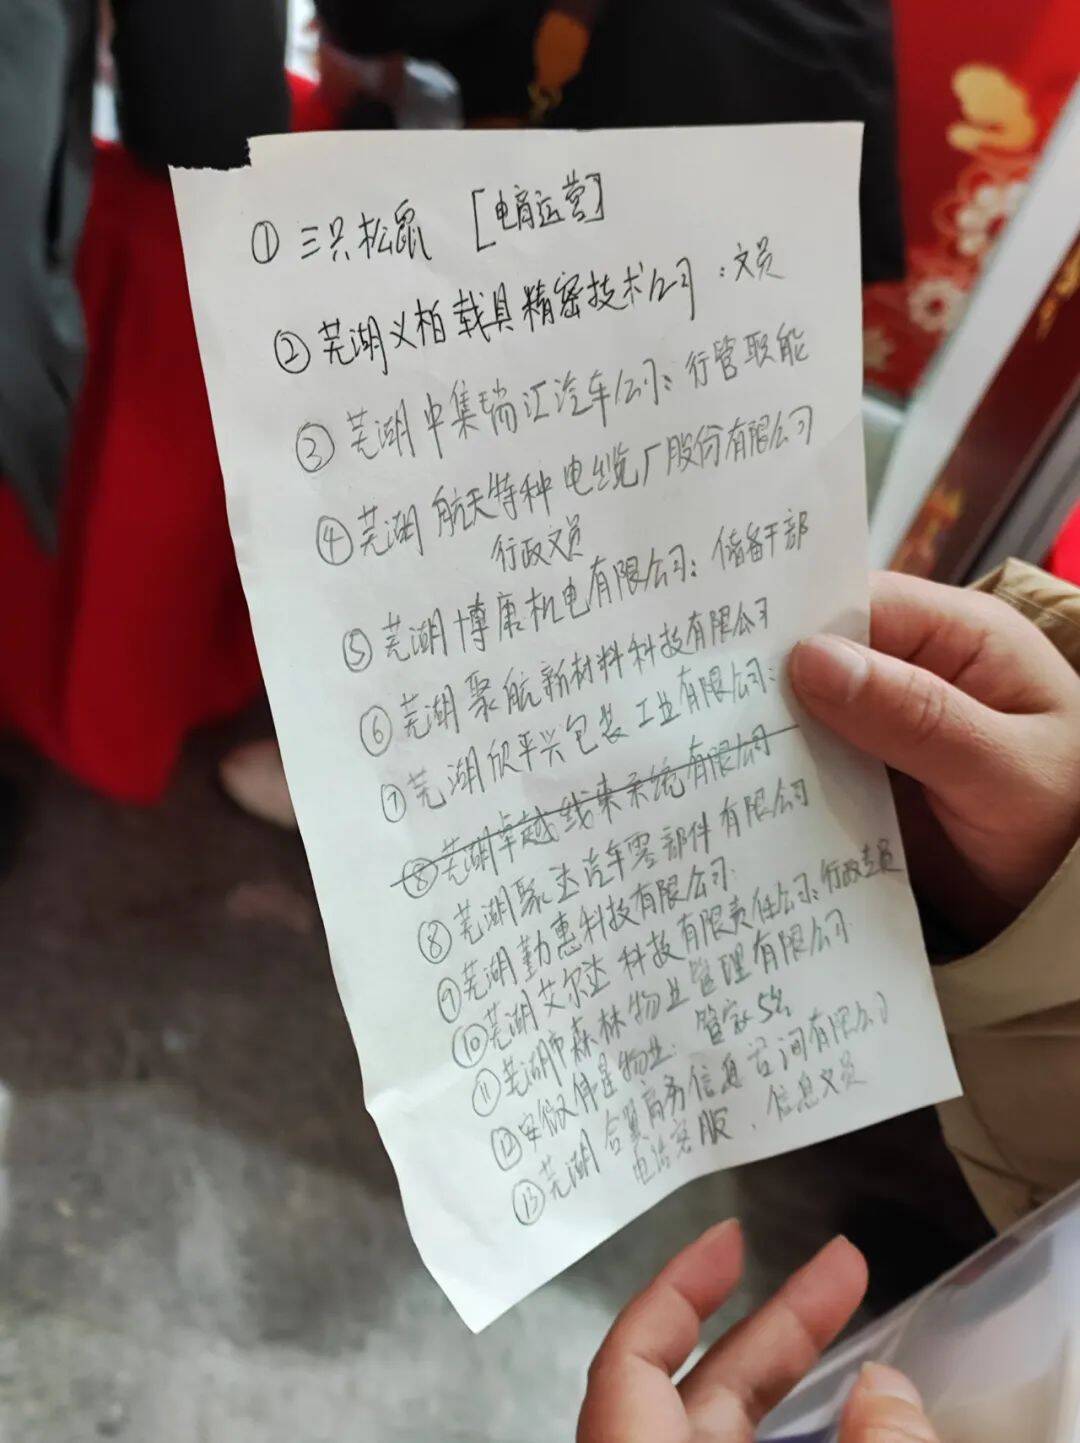 ① 三只松鼠 [电商运营]
② 芜湖义柏载具精密技术公司：文员
③ 芜湖中集瑞江汽车公司：行管职能
④ 芜湖航天特种电缆厂股份有限公司
行政文员
⑤ 芜湖博康机电有限公司：储备干部
⑥ 芜湖聚航新材料科技有限公司
⑦ 芜湖欣平兴包装工业有限公司：
⑧ 芜湖卓越线束系统有限公司
⑧ 芜湖聚达汽车零部件有限公司
⑨ 芜湖勤惠科技有限公司
⑩ 芜湖艾尔达科技有限责任公司：行政专员
⑪ 芜湖市森林物业管理有限公司
⑫ 安徽伟星物业：管家5名
⑬ 芜湖 商务信息 有限公司
电话客服、信息文员